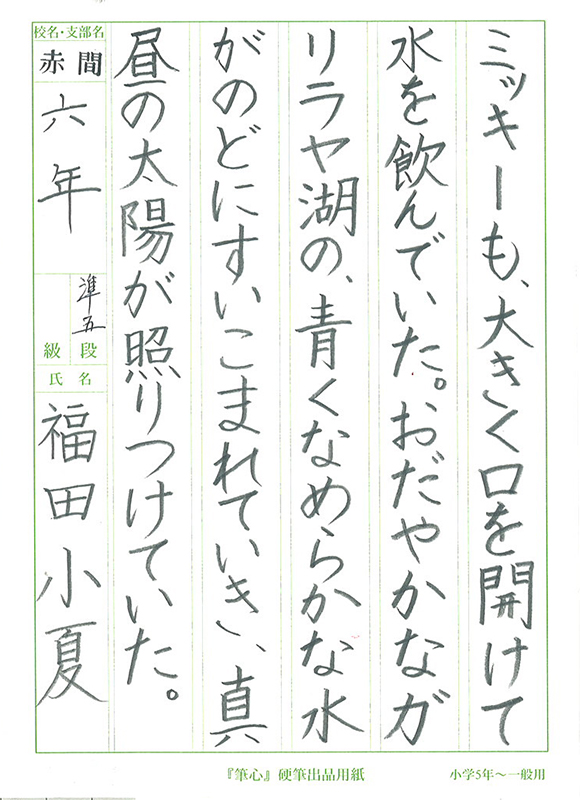 ミッキーも、大きく口を開けて
水を飲んでいた。おだやかなガ
リラヤ湖の、青くなめらかな水
がのどにすいこまれていき、真
昼の太陽が照りつけていた。
校名・支部名
赤間
六年
準五
段
級
氏名
福田小夏
『筆心』硬筆出品用紙
小学5年～一般用